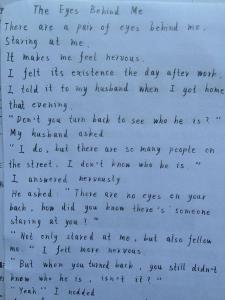 The Eyes Behind Me
There are a pair of eyes behind me.
Staring at me.
It makes me feel nervous.
I felt its existence the day after work.
I told it to my husband when I got home
that evening.
"Don't you turn back to see who he is?"
My husband asked
"I do, but there are so many people on
the street. I don't know who he is."
I answered nervously
He asked: "There are no eyes on your
back, how did you know there's someone
staring at you?"
"Not only stared at me, but also follow
me." I felt more nervous.
"But when you turned back, you still didn't
know who he is, isn't it?"
"Yeah." I nodded